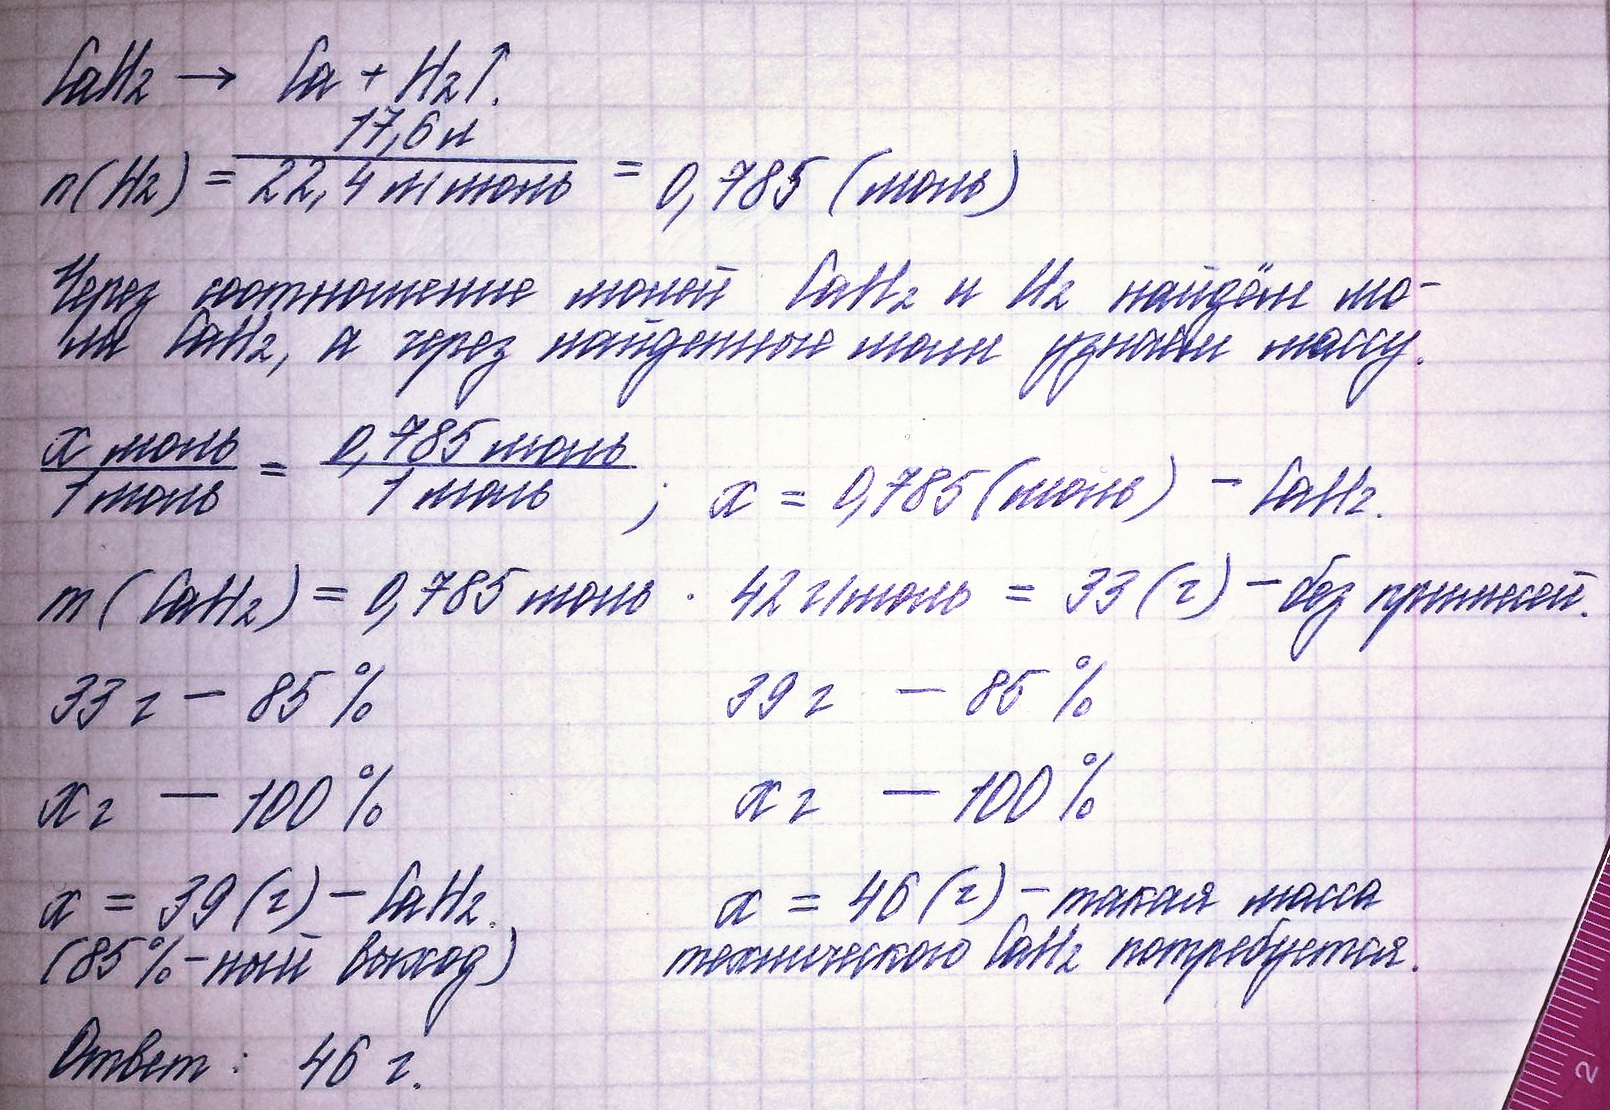 CaH2 → Ca + H2↑.
n(H2) = 17,6 л / 22,4 л/моль = 0,785 (моль)
Через соотношение молей CaH2 и H2 найдём мо-
ли CaH2, а через найденные моли узнаём массу.
x моль / 1 моль = 0,785 моль / 1 моль ; x = 0,785 (моль) – CaH2.
m(CaH2) = 0,785 моль · 42 г/моль = 33 (г) – без примесей.
33 г – 85% 39 г – 85%
x г – 100% x г – 100%
x = 39 (г) – CaH2. x = 46 (г) – такая масса
(85%-ный выход) технического CaH2 потребуется.
Ответ: 46 г.
2